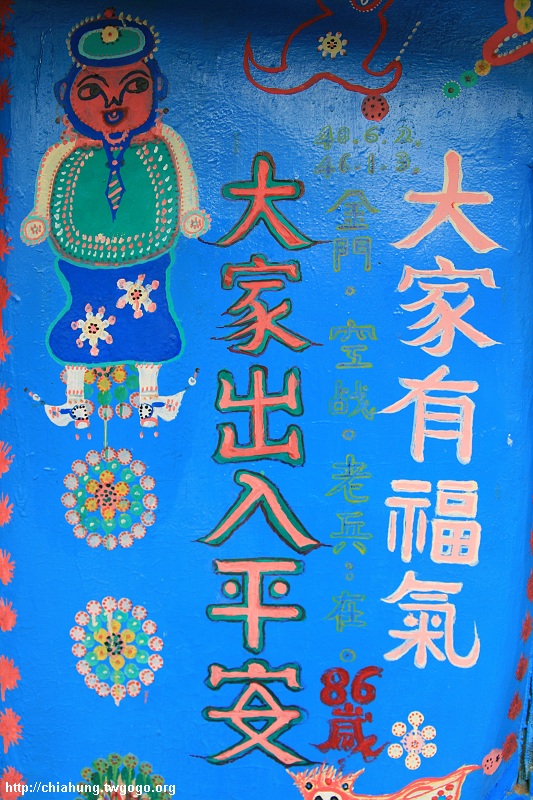 大家有福氣
40.6.2.
46.1.3.
金門·空战。老兵:在。
86歲
大家出入平安
http://chiahung.twgogo.org